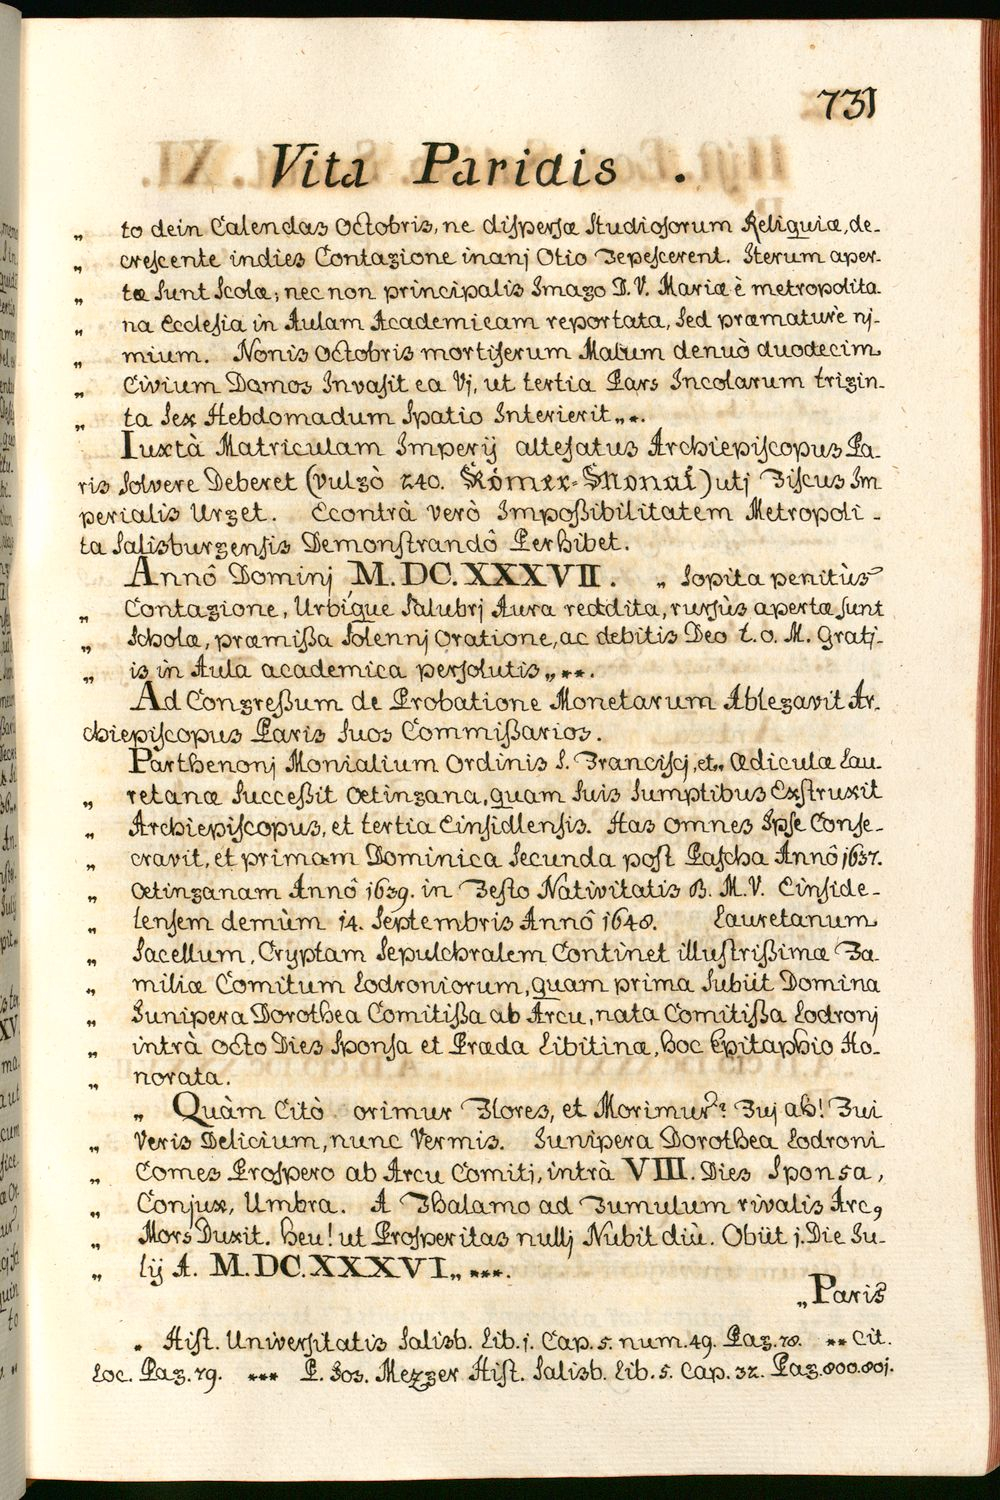 731
Vita Paridis .
„ to dein Calendas Octobris, ne disperſæ Studioſorum Reliquiæ, de-
„ creſcente indies Contagione inanj Otio Tepeſcerent. Iterum aper-
„ tæ Sunt Scolæ; nec non principalis Imago D.V. Mariæ è metropolita
„ na Ecclesia in Aulam Academicam reportata, sed præmaturè nj-
„ mium. Nonis Octobris mortiferum Malum denuò duodecim
„ Civium Domos Invaſit ea Vj, ut tertia Pars Incolarum trigin-
„ ta Sex Hebdomadum Spatio Interierit„*.
Iuxtà Matriculam Imperij altefatus Archiepiſcopus Pa-
ris Solvere Deberet (vulgò 240. Römer-Monat) utj Fiscus Im
perialis Urget. Econtrà verò Impoßibilitatem Metropoli-
ta Salisburgensis Demonſtrandô Perhibet.
Annô Dominj M.DC.XXXVII. „ Sopita penitùs
„ Contagione, Urbíque Salubrj Aura reddita, rurſùs apertæ sunt
„ Scholæ, præmißa Solennj Oratione, ac debitis Deo t.o.M. Gratj-
„ is in Aula academica perſolutis„**.
Ad Congreßum de Probatione Monetarum Ablegavit Ar-
chiepiſcopus Paris Suos Commißarios.
Parthenonj Monialium Ordinis S. Franciſcj, et„ Ædiculæ Lau
„ retanæ Succeßit Œtingana, quam Suis Sumptibus Exſtruxit
„ Archiepiſcopus, et tertia Einſidlensis. Has omnes Ipſe Conſe-
„ cravit, et primam Dominica Secunda poſt Paſcha Annô 1637.
„ Œtinganam Annô 1639. in Feſto Nativitatis B. M.V. Einſide-
„ lensem demùm 14. Septembris Annô 1648. Lauretanum
„ Sacellum, Cryptam Sepulchralem Continet illuſtrißimæ Fa-
„ miliæ Comitum Lodroniorum, quam prima Subiit Domina
„ Junipera Dorothea Comitißa ab Arcu, nata Comitißa Lodronj
„ intrà octo Dies Sponſa et Præda Libitinæ, hoc Epitaphio Ho-
„ norata.
„ Quàm Citò orimur Flores, et Morimur? Fuj ah! Fui
„ Veris Delicium, nunc Vermis. Junipera Dorothea Lodroni
„ Comes Proſpero ab Arcu Comiti, intrà VIII. Dies Sponsa,
„ Conjux, Umbra. A Thalamo ad Tumulum rivalis Arc9
„ Mors Duxit. heu! ut Proſperitas nullj Nubit diù. Obiit j. Die Ju-
„ lij A. M.DC.XXXVI„ ***.
„Paris
* Hiſt. Universitatis Salisb. Lib. j. Cap. 5. num. 49. Pag. 78. ** Cit.
Loc. Pag. 79. *** P. Jos. Mezger Hiſt. Salisb. Lib. 5. Cap. 32. Pag. 800. 80j.